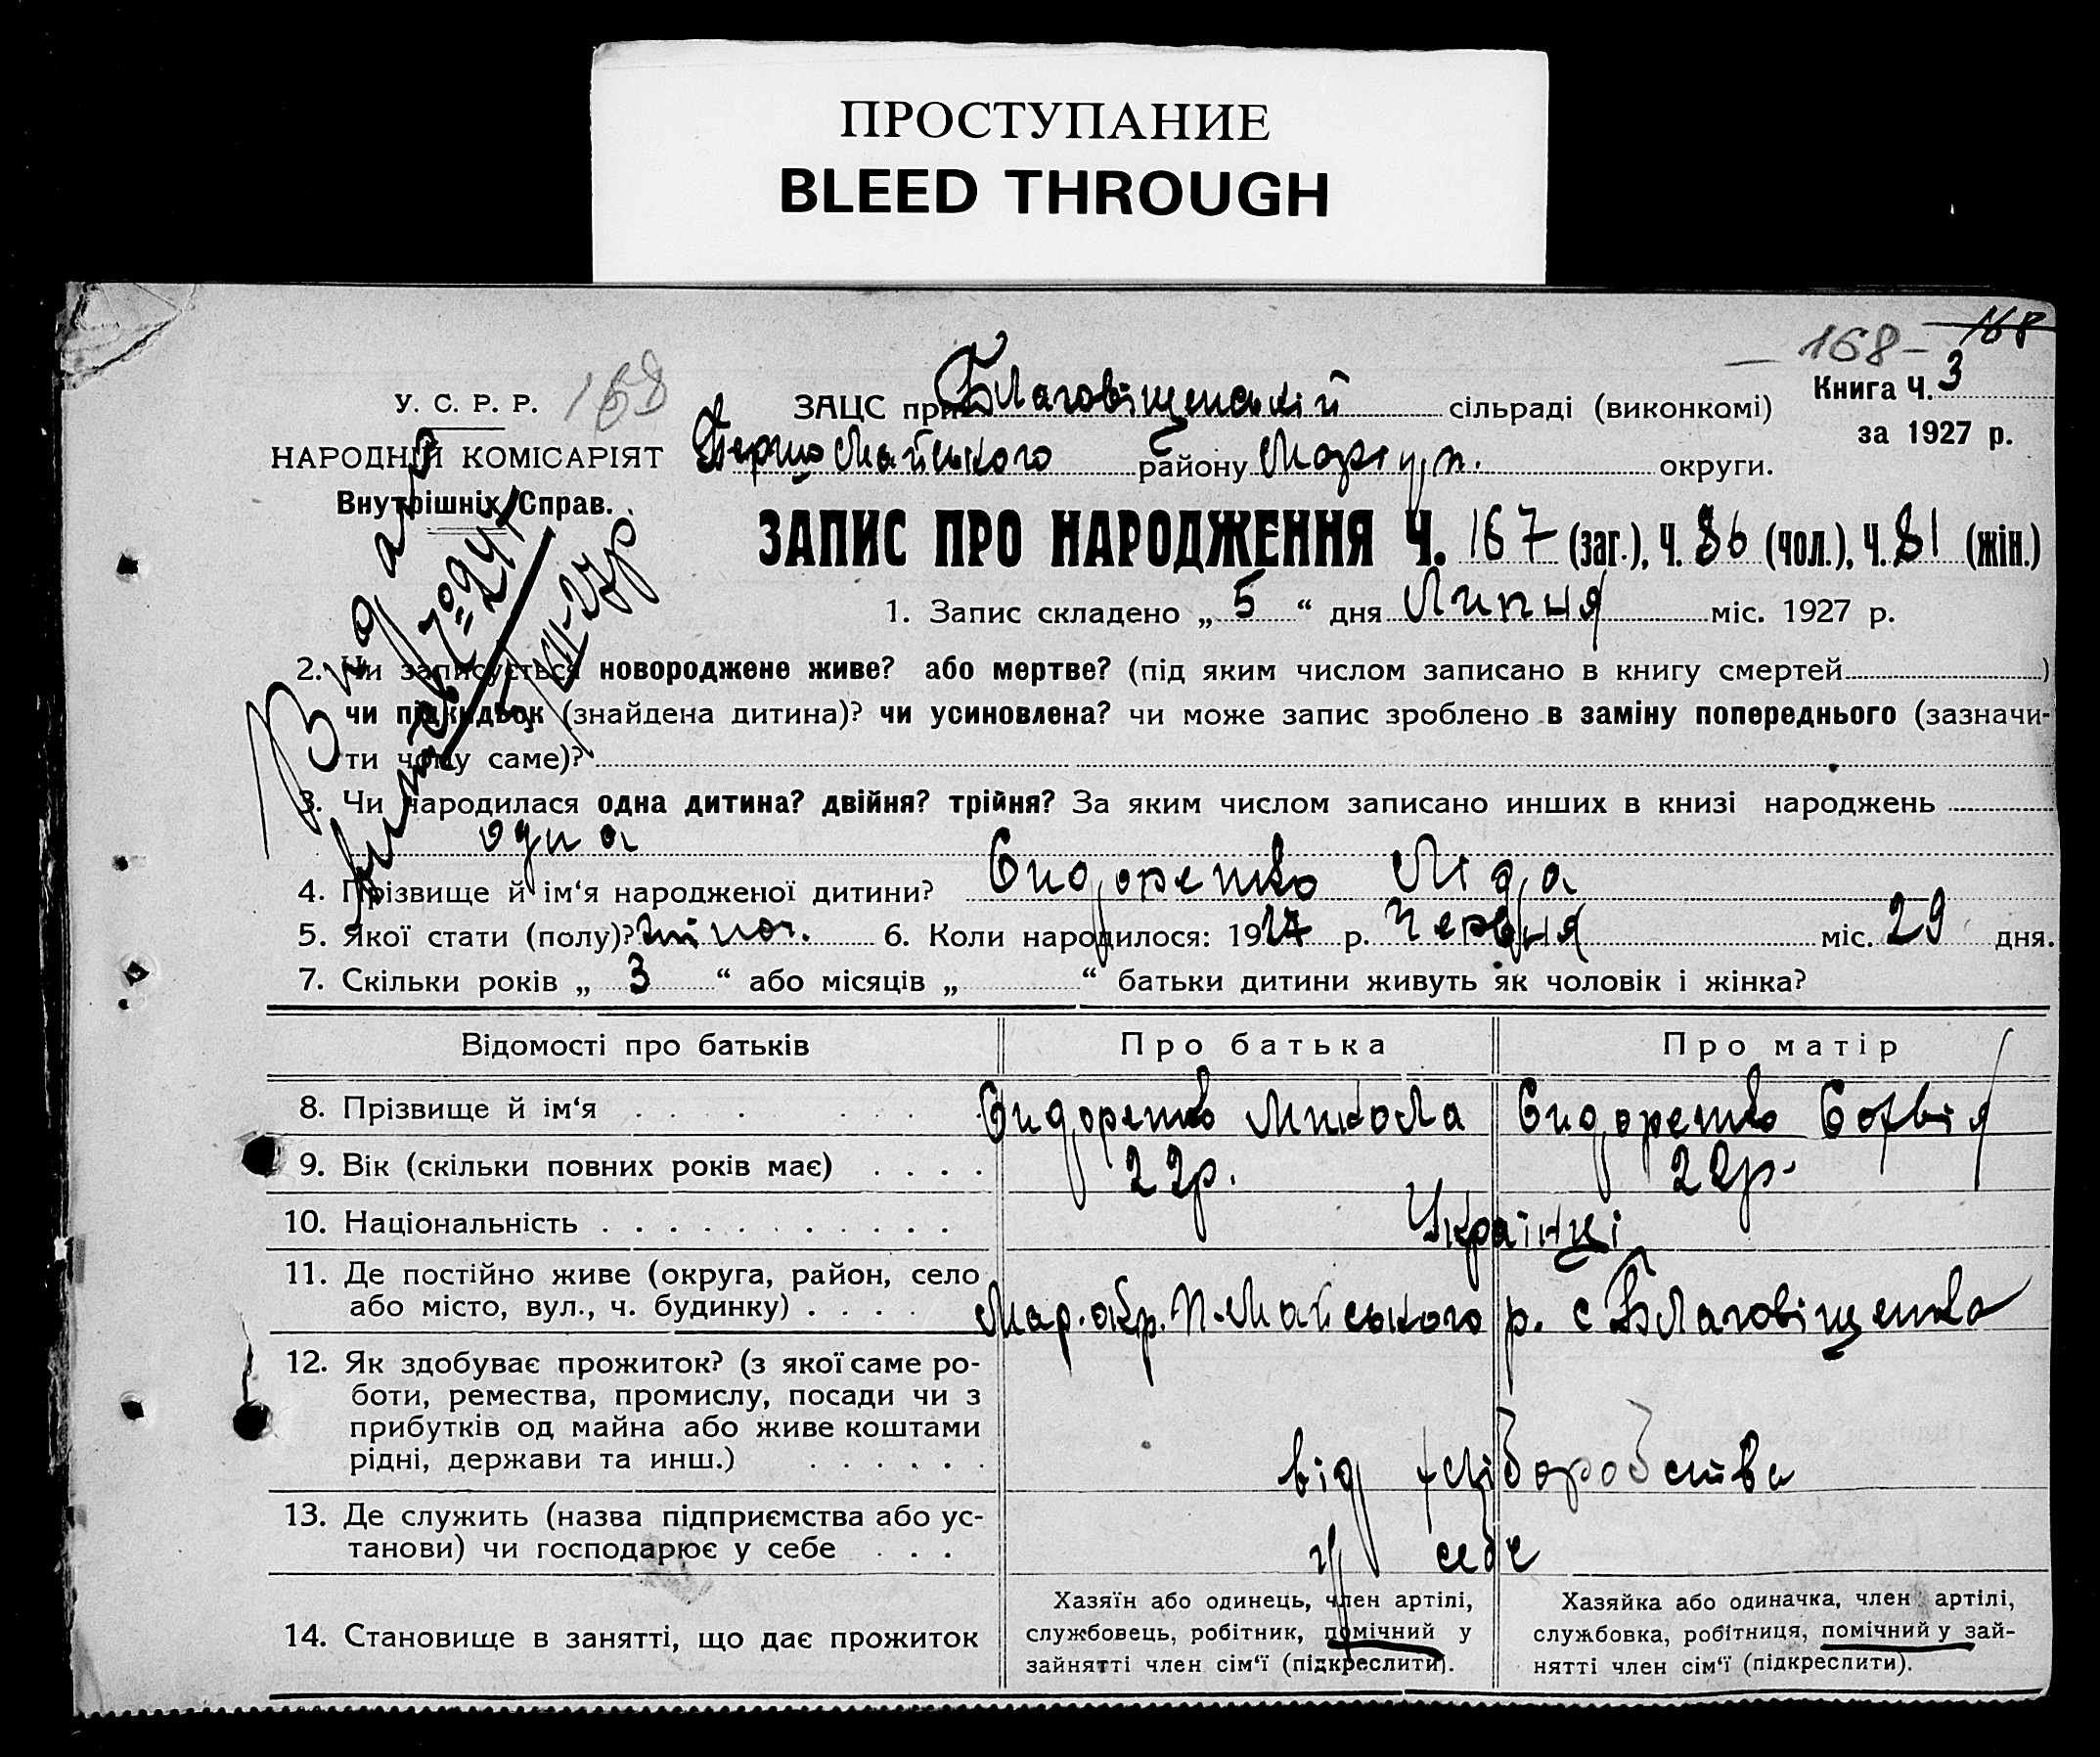 ПРОСТУПАНИЕ
BLEED THROUGH
168
– 168 –
У. С. Р. Р.
168
ЗАЦС при Благовіщенській сільраді (виконкомі)
Книга Ч. 3
НАРОДНІЙ КОМІСАРІЯТ
Першо Майського району Маріуп. округи.
за 1927 р.
Внутрішніх Справ.
ЗАПИС ПРО НАРОДЖЕННЯ Ч. 167 (заг.), Ч. 86 (чол.), Ч. 81 (жін.)
1. Запис складено „ 5 “ дня Липня міс. 1927 р.
2. Чи записується новороджене живе? або мертве? (під яким числом записано в книгу смертей )
чи підкидьок (знайдена дитина)? чи усиновлена? чи може запис зроблено в заміну попереднього (зазначи-
ти чому саме)?
3. Чи народилася одна дитина? двійня? трійня? За яким числом записано инших в книзі народжень
одна
4. Прізвище й ім‘я народженої дитини? Сидоренко Ліда
5. Якої стати (полу)? жіноч. 6. Коли народилося: 1927 р. Червня міс. 29 дня.
7. Скільки років „ 3 “ або місяців „ “ батьки дитини живуть як чоловік і жінка?
Відомості про батьків Про батька Про матір
8. Прізвище й ім‘я Сидоренко Микола Сидоренко Софвія
9. Вік (скільки повних років має) 22р. 22р.
10. Національність Українці
11. Де постійно живе (округа, район, село
або місто, вул., ч. будинку) Мар. окр. П-Майського р. с Благовіщенка
12. Як здобуває прожиток? (з якої саме ро-
боти, ремества, промислу, посади чи з
прибутків од майна або живе коштами
рідні, держави та инш.) від хліборобства
13. Де служить (назва підприємства або ус-
танови) чи господарює у себе у себе
14. Становище в занятті, що дає прожиток
Хазяїн або одинець, член артілі,
службовець, робітник, помічний у
зайнятті член сім‘ї (підкреслити).
Хазяйка або одиначка, член артілі,
службовка, робітниця, помічний у зай-
нятті член сім‘ї (підкреслити).